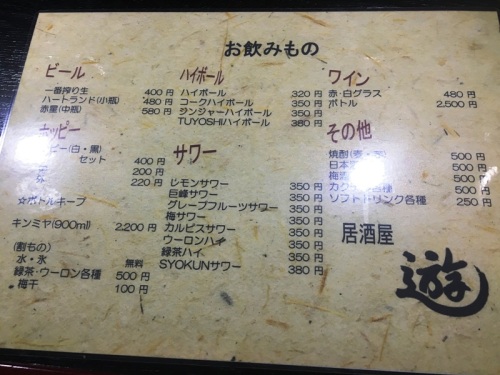 お飲みもの
ビール
一番搾り生 400円
ハートランド(小瓶) 480円
赤星(中瓶) 580円
ホッピー
ピー(白・黒)
セット 400円
200円
220円
☆ボトルキープ
キンミヤ(900ml) 2,200円
(割もの)
水・氷 無料
緑茶・ウーロン各種 500円
梅干 100円
ハイボール
ハイボール 320円
コークハイボール 350円
ジンジャーハイボール 350円
TUYOSHIハイボール 380円
サワー
レモンサワー 350円
巨峰サワー 350円
グレープフルーツサワー 350円
梅サワー 350円
カルピスサワー 350円
ウーロンハイ 350円
緑茶ハイ 350円
SYOKUNサワー 380円
ワイン
赤・白グラス 480円
ボトル 2,500円
その他
焼酎(麦・ 500円
日本 500円
梅酒 500円
カク 各種 500円
ソフトドリンク各種 250円
居酒屋
遊